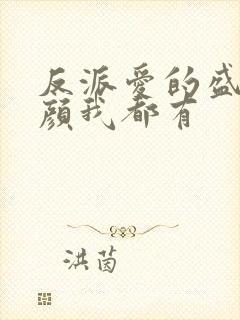 反派爱的盛
颜我都有
洪茵